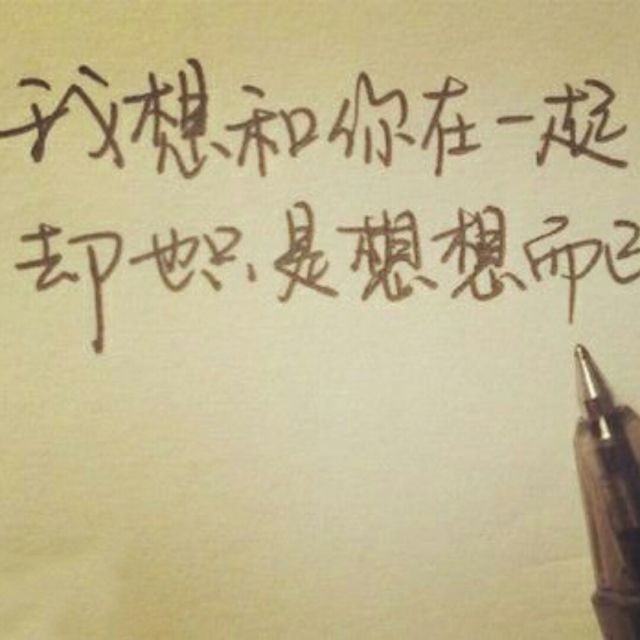 我想和你在一起
却也只是想想而已